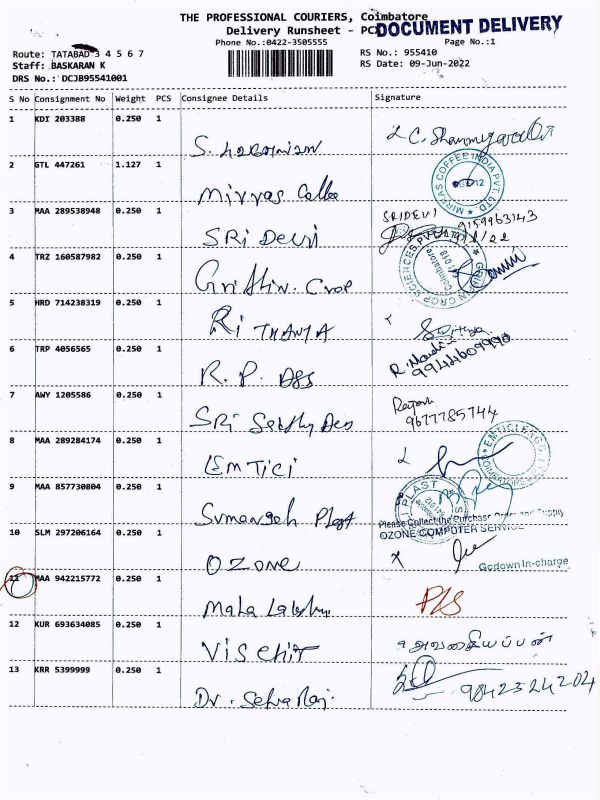 THE PROFESSIONAL COURIERS, Coimbatore
Delivery Runsheet - PCX
DOCUMENT DELIVERY
Phone No.:0422-3505555
Page No.:1
Route: TATABAD 3 4 5 6 7
RS No.: 955410
Staff: BASKARAN K
RS Date: 09-Jun-2022
DRS No.: DCJB95541001
S No Consignment No Weight PCS Consignee Details Signature
1 KDI 203388 0.250 1
2 GTL 447261 1.127 1
MIRRAS COFFEE INDIA PVT. LTD
3 MAA 289538948 0.250 1 SRi Devi SRIDEVI 9159963143
4 TRZ 160587982 0.250 1 Griffin Crop
CROP SCIENCES PVT LTD
Coimbatore
5 HRD 714238319 0.250 1 Ri THANYA
6 TRP 4056565 0.250 1 R. P. R. Nandini 9944609990
7 AWY 1205586 0.250 1 SRi Rajesh 9677785744
8 MAA 289284174 0.250 1 EMTICI
9 MAA 857730804 0.250 1 Sumangal Plast
PLAST
Please Collect the Purchase Order and Supply
10 SLM 297206164 0.250 1 OZONE
OZONE COMPUTER SERVICE
Godown In-charge
11 MAA 942215772 0.250 1 Maha
12 KUR 693634085 0.250 1
13 KRR 5399999 0.250 1 Dr. Selva Raj 9842324204